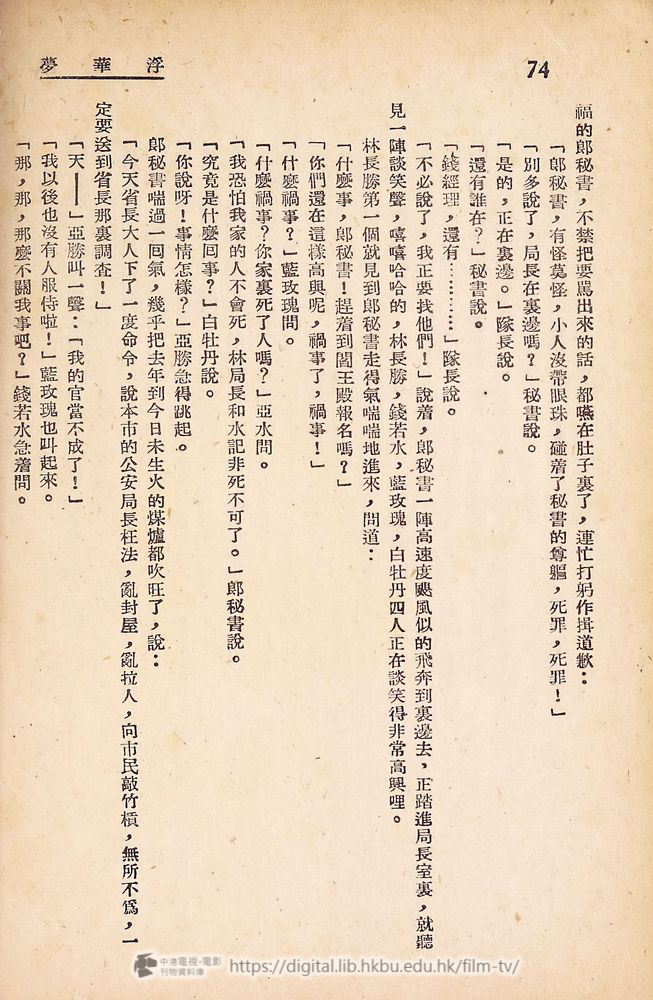 74
浮華夢
福的郎秘書，不禁把要罵出來的話，都嚥在肚子裏了，連忙打躬作揖道歉：
「郎秘書，有怪莫怪，小人沒帶眼珠，碰着了秘書的尊軀，死罪，死罪！」
「別多說了，局長在裏邊嗎？」秘書說。
「是的，正在裏邊。」隊長說。
「還有誰在？」秘書說。
「錢經理，還有…………」隊長說。
「不必說了，我正要找他們！」說着，郎秘書一陣高速度颶風似的飛奔到裏邊去，正踏進局長室裏，就聽
見一陣談笑聲，嘻嘻哈哈的，林長勝，錢若水，藍玫瑰，白牡丹四人正在談笑得非常高興哩。
林長勝第一個就見到郎秘書走得氣喘喘地進來，問道：
「什麽事，郎秘書！趕着到閻王殿報名嗎？」
「你們還在這樣高興呢，禍事了，禍事！」
「什麽禍事？」藍玫瑰問。
「什麽禍事？你家裏死了人嗎？」亞水問。
「我恐怕我家的人不會死，林局長和水記非死不可了。」郎秘書說。
「究竟是什麽回事？」白牡丹說。
「你說呀！事情怎樣？」亞勝急得跳起。
郎秘書喘過一回氣，幾乎把去年到今日未生火的煤爐都吹旺了，說：
「今天省長大人下了一度命令，說本市的公安局長枉法，亂封屋，亂拉人，向市民敲竹槓，無所不爲，一
定要送到省長那裏調查！」
「天——」亞勝叫一聲：「我的官當不成了！」
「我以後也沒有人服侍啦！」藍玫瑰也叫起來。
「那，那，那麽不關我事吧？」錢若水急着問。
中港電視·電影
刊物資料庫
https://digital.lib.hkbu.edu.hk/film-tv/